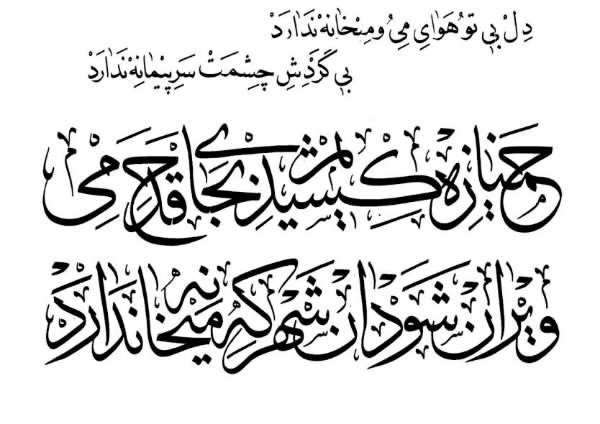 دل بی تو هوای می و میخانه ندارد
بی گردش چشمت سر پیمانه ندارد
خمیازه کشیدیم بجای قدح می
ویران شود آن شهر که میخانه ندارد